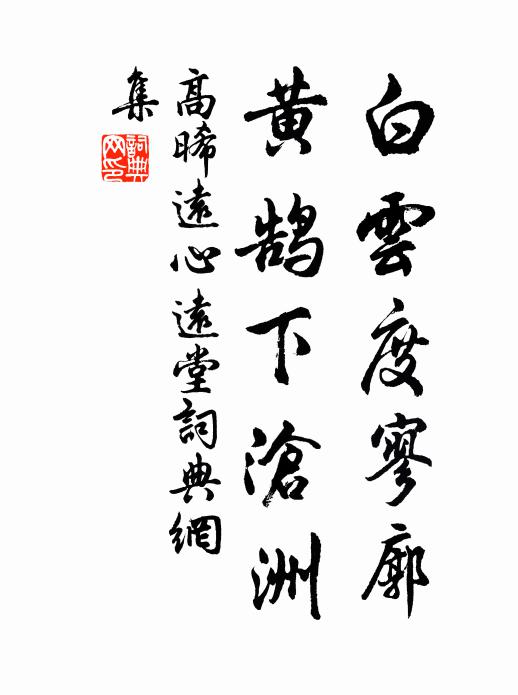 白雲度寥廓
黃鵠下滄洲
高晞遠心遠堂詞典網
集
詞典網印